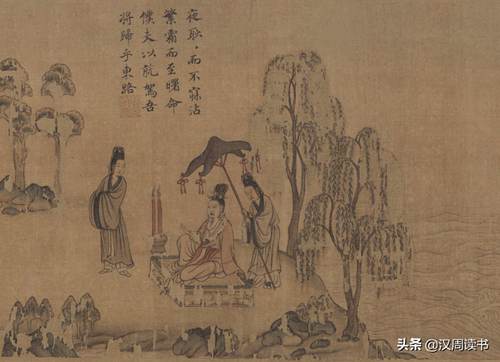 夜耿〻而不寐沾
繁霜而至曙命
僕夫以就駕吾
將歸乎東路
头条 @汉周读书